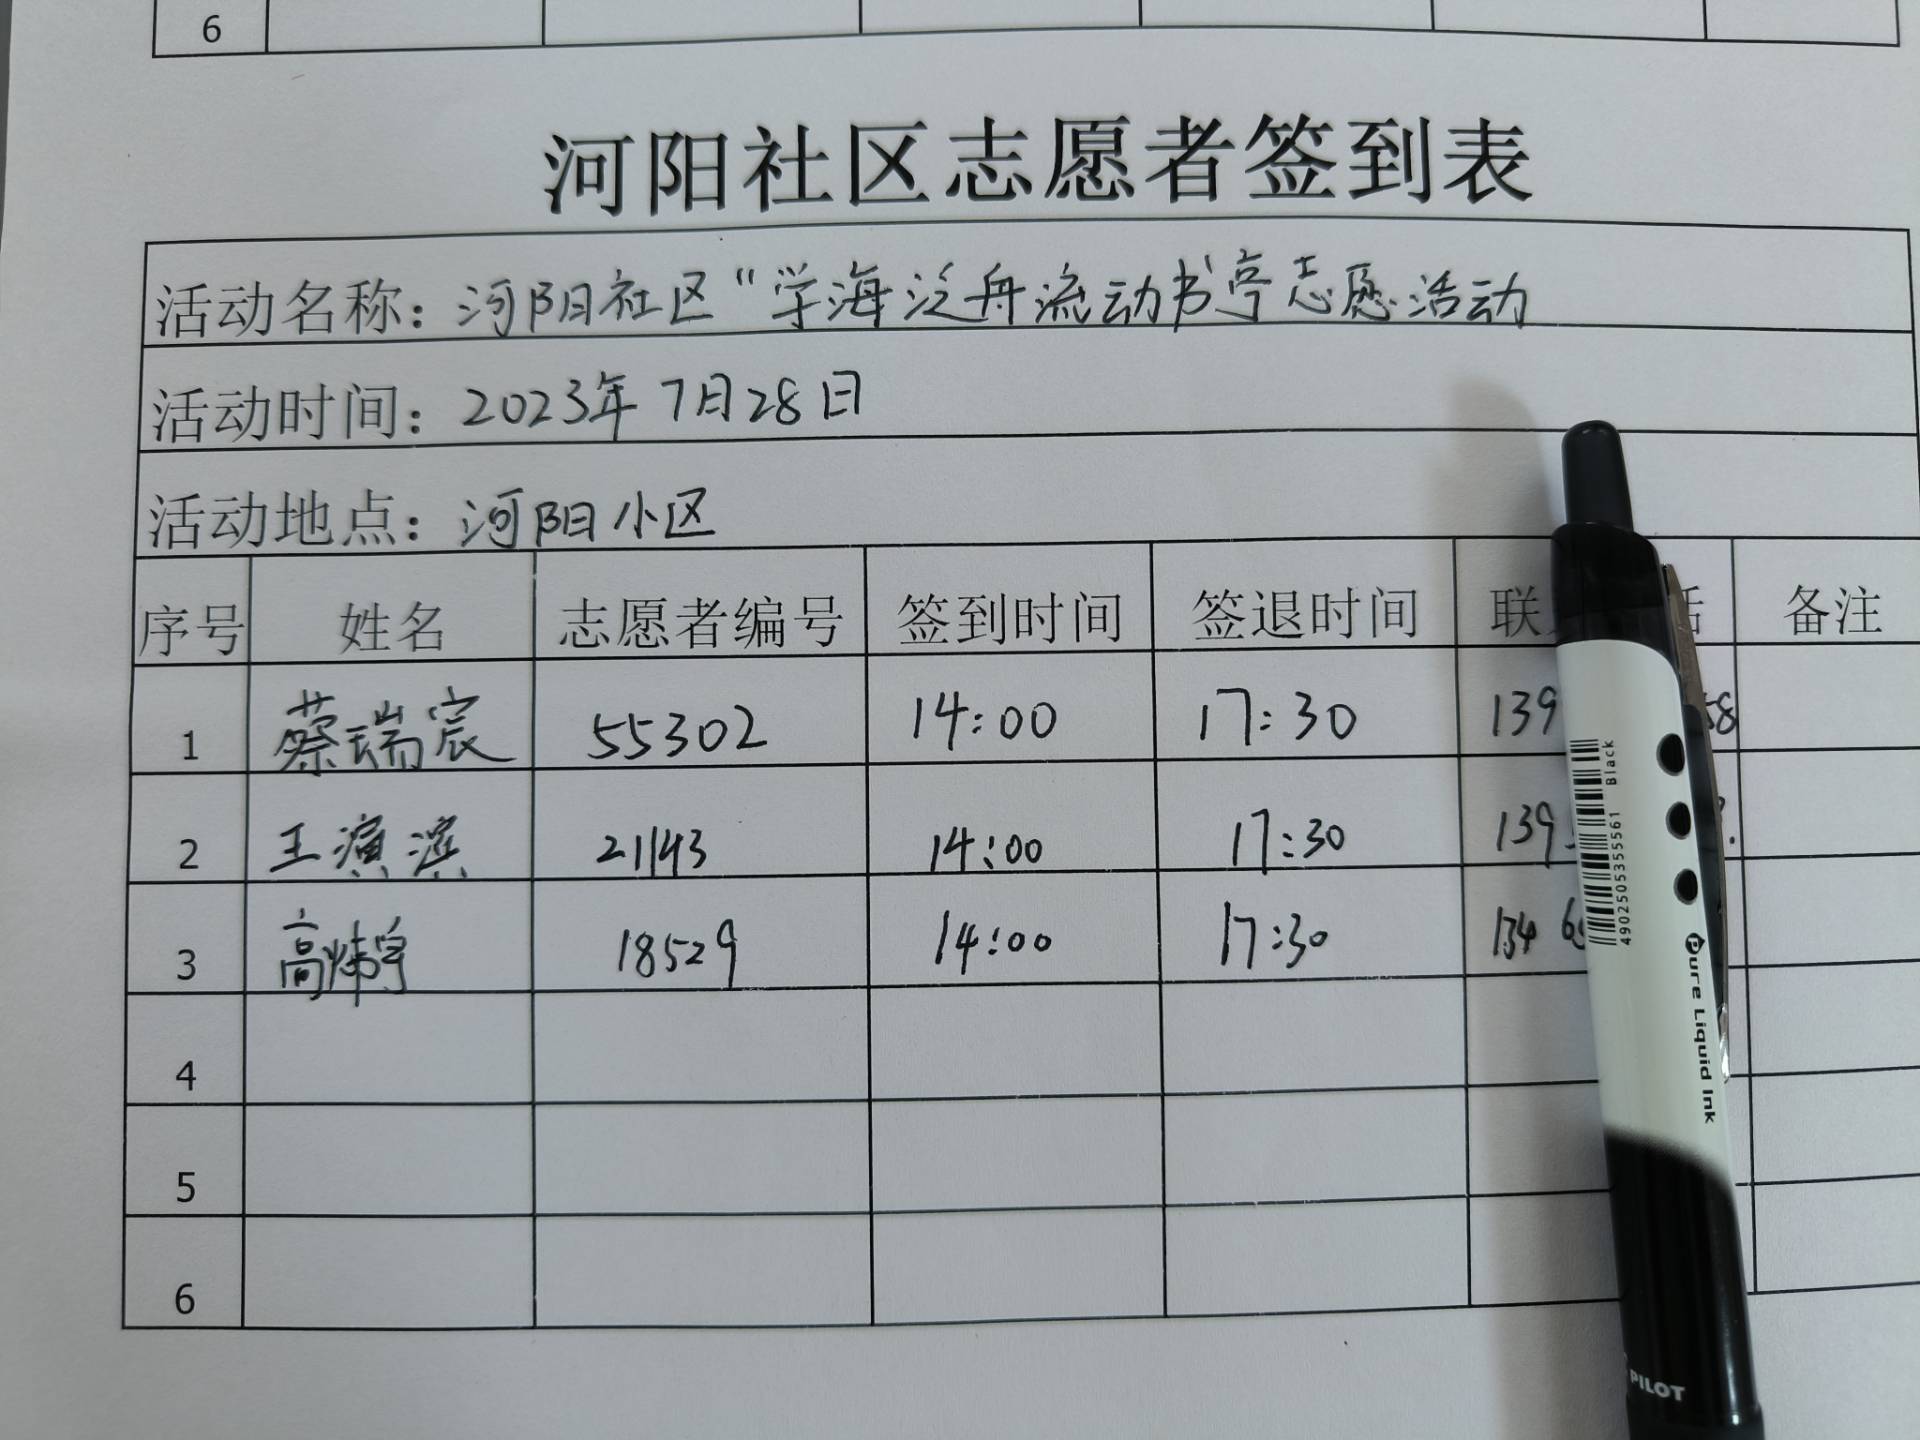 6
河阳社区志愿者签到表
活动名称：河阳社区“学海泛舟流动书亭志愿活动
活动时间：2023年7月28日
活动地点：河阳小区
序号 姓名 志愿者编号 签到时间 签退时间 联 话 备注
1 蔡瑞宸 55302 14:00 17:30 139 58
2 王演滨 21143 14:00 17:30 139
3 高炜宇 18529 14:00 17:30 134 6
4
5
6
Black
4902505355561
Pure Liquid Ink
PILOT